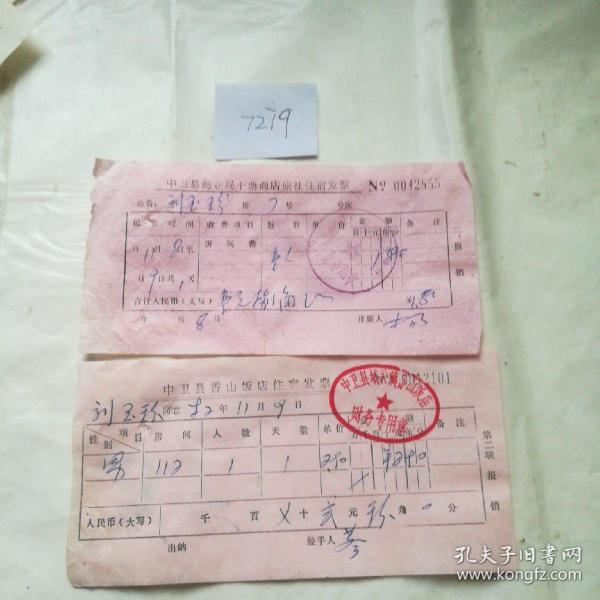 7279
中卫县商业局干塘商店旅社住宿发票 № 0042855
姓名: 刘玉珍 房 7 号 号床
起止时间 收费项目 数目 单价 金额 备注
百十元角分
月 8 日至 房间费
11 月 9 日共 1 天
合计人民币(大写) 壹元捌角
年 月 8 日 开票人
二、报销
中卫县香山饭店住宿发票 0042101
刘玉珍 同志 82 年 11 月 9 日
性别 项目 房间 人数 天数 单价 金额 备注
男 112 1 1 290
人民币(大写) 千 百 十 贰 元 玖 角 0 分
出纳 经手人
第二联报销
财务专用章
孔夫子旧书网
www.kongfz.com